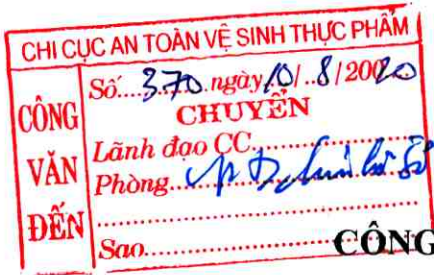 CHI CỤC AN TOÀN VỆ SINH THỰC PHẨM
CÔNG VĂN ĐẾN
Số....370.ngày.10/..8/2020
CHUYỂN
Lãnh đạo CC.....................
Phòng
Sao.....................
CÔNG